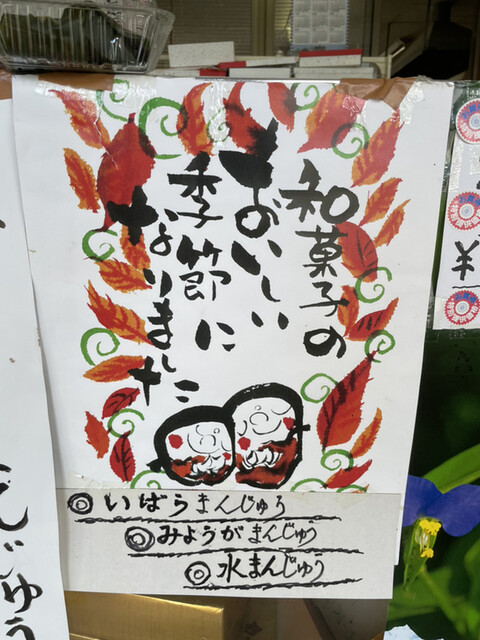 和菓子の
おいしい
季節に
なりました
◎いばらまんじゅう
◎みょうがまんじゅう
◎水まんじゅう
んじゅう
¥